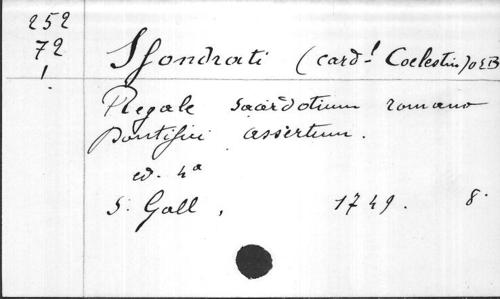 252
72
!
Sfondrati (card! Coelestin) OSB
Regale sacerdotium romano
pontifici assertum.
ed. 4a
S. Gall, 1749. 8.